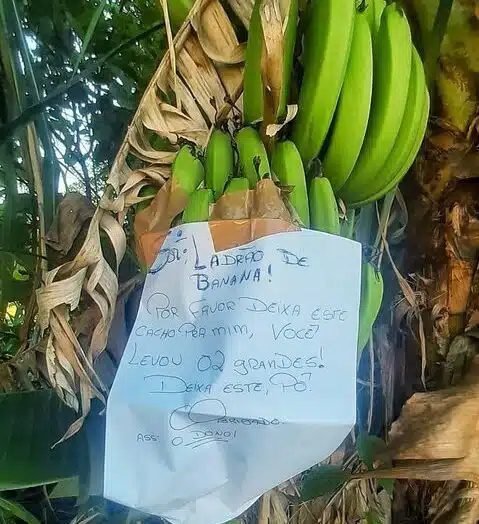 Sr. LADRÃO DE
BANANA!
POR FAVOR DEIXA ESTE
CACHO PRA MIM, VOCÊ
LEVOU 02 GRANDES!
DEIXA ESTE, PÔ
OBRIGADO.
ASS: O DONO!